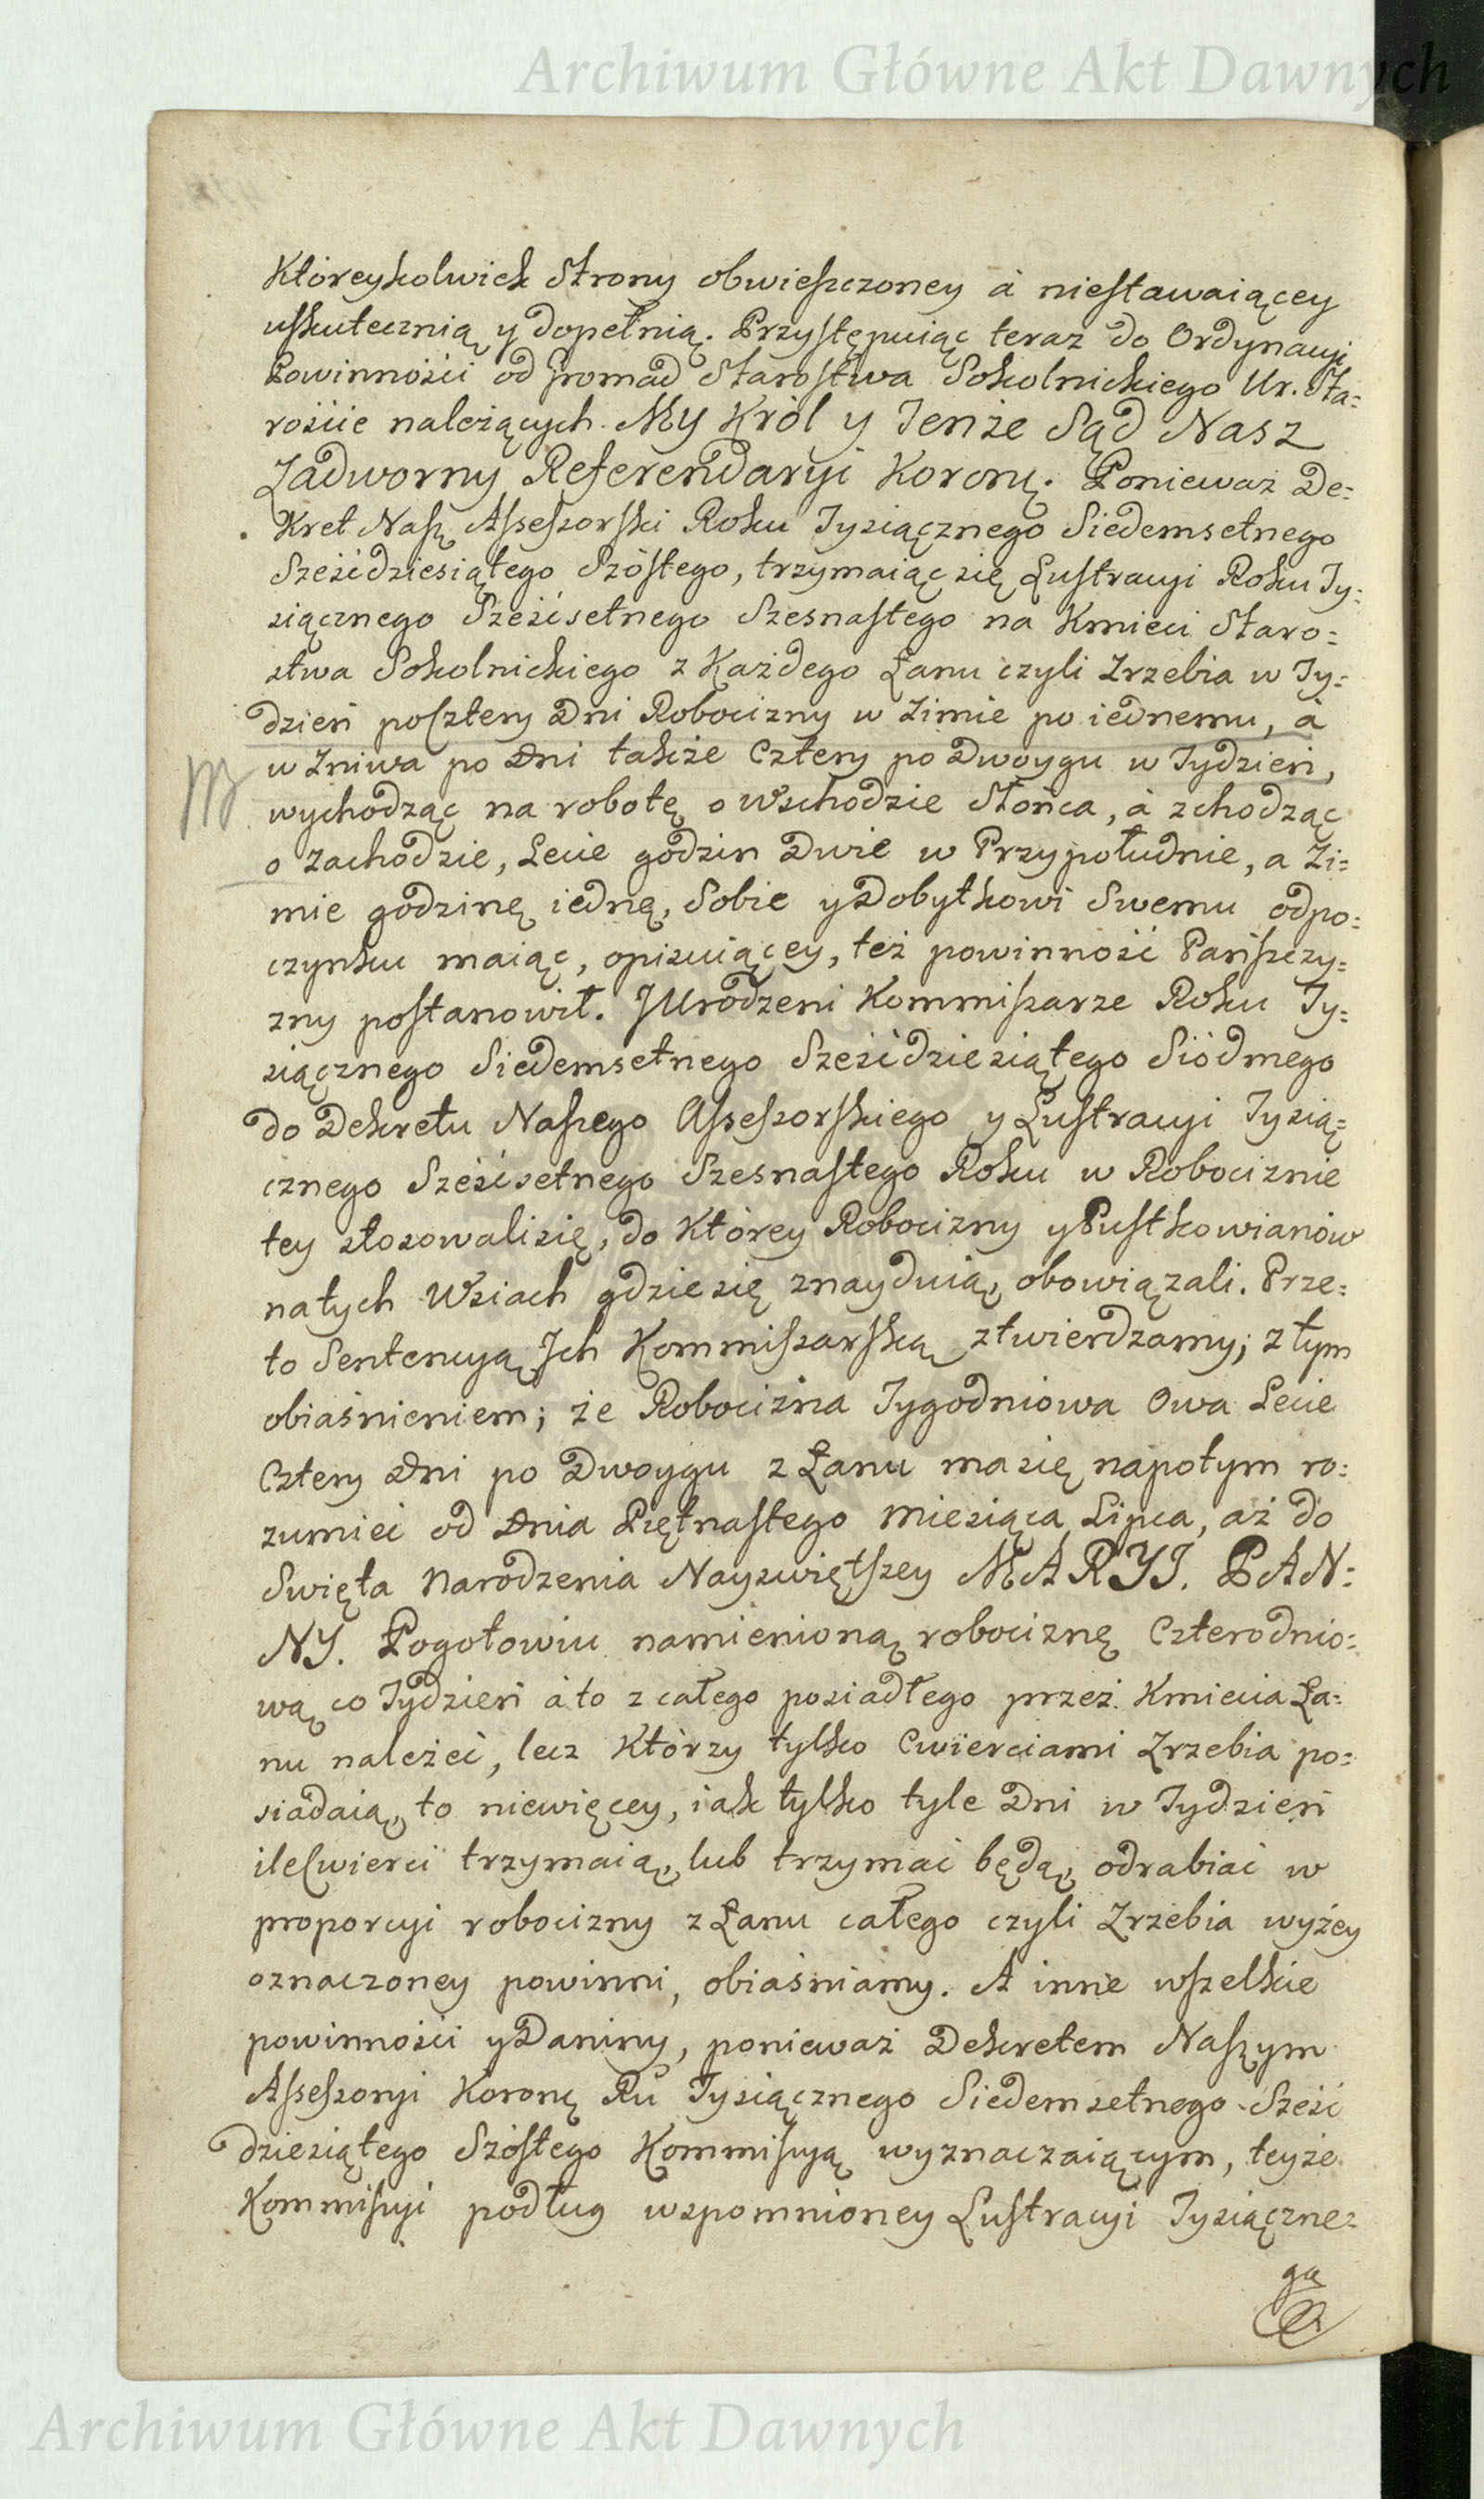 Archiwum Główne Akt Dawnych
Któreykolwiek Strony obwieszczoney à niestawaiącey
uskutecznią y dopełnią. Przystępuiąc teraz do Ordynacyi
Powinności od Gromad Starostwa Sokolnickiego Ur. Sta=
roście należących. My Król y Tenże Sąd Nasz
Zadworny Referendaryi Koronę. Ponieważ De=
kret Nasz Assessorski Roku Tysiącznego Siedemsetnego
Sześćdziesiątego Szóstego, trzymaiąc się Lustracyi Roku Ty=
siącznego Sześćsetnego Szesnastego na Kmieci Staro=
stwa Sokolnickiego z Każdego Łanu czyli Zrzebia w Ty=
dzień poCztery Dni Robocizny w Zimie po iednemu, à
w Zniwa po Dni także Cztery po Dwoygu w Tydzień,
wychodząc na robotę o Wschodzie Słońca, à zchodząc
o Zachodzie, Lecie godzin Dwie w Przypołudnie, a Zi=
mie godzinę iednę, Sobie y Dobytkowi Swemu odpo=
czynku maiąc, opisuiącey, też powinność Pańszczy=
zny postanowił. JUrodzeni Kommissarze Roku Ty=
siącznego Siedemsetnego Sześćdziesiątego Siódmego
do Dekretu Naszego Assessorskiego y Lustracyi Tysią=
cznego Sześćsetnego Szesnastego Roku w Robociznie
tey stosowalisię, do Którey Robocizny y Pustkowianów
natych Wsiach gdziesię znayduią, obowiązali. Prze=
to Sentencyą Ich Kommissarską ztwierdzamy; z tym
obiaśnieniem; że Robocizna Tygodniowa Owa Lecie
Cztery Dni po Dwoygu z Łanu masię napotym ro=
zumieć od Dnia Piętnastego Miesiąca Lipca, aż do
Swięta Narodzenia Nayswiętszey MARYI. PAN=
NY. Pogotowiu namienioną robociznę Czterodnio=
wą co Tydzień à to z całego posiadłego przez Kmiecia Ła=
nu należeć, lecz Którzy tylko Cwierciami Zrzebia po=
siadaią, to niewięcey, iak tylko tyle Dni w Tydzień
ileCwierci trzymaią, lub trzymać będą, odrabiać w
proporcyi robocizny z Łanu całego czyli Zrzebia wyżey
oznaczoney powinni, obiaśniamy. A inne wszelkie
powinności y Daniny, ponieważ Dekretem Naszym
Assessoryi Koronę Ru Tysiącznego Siedemsetnego Sześć
dziesiątego Szóstego Kommissyą wyznaczaiącym, teyże
Kommissyi podług wspomnioney Lustracyi Tysiączne=
go
Archiwum Główne Akt Dawnych